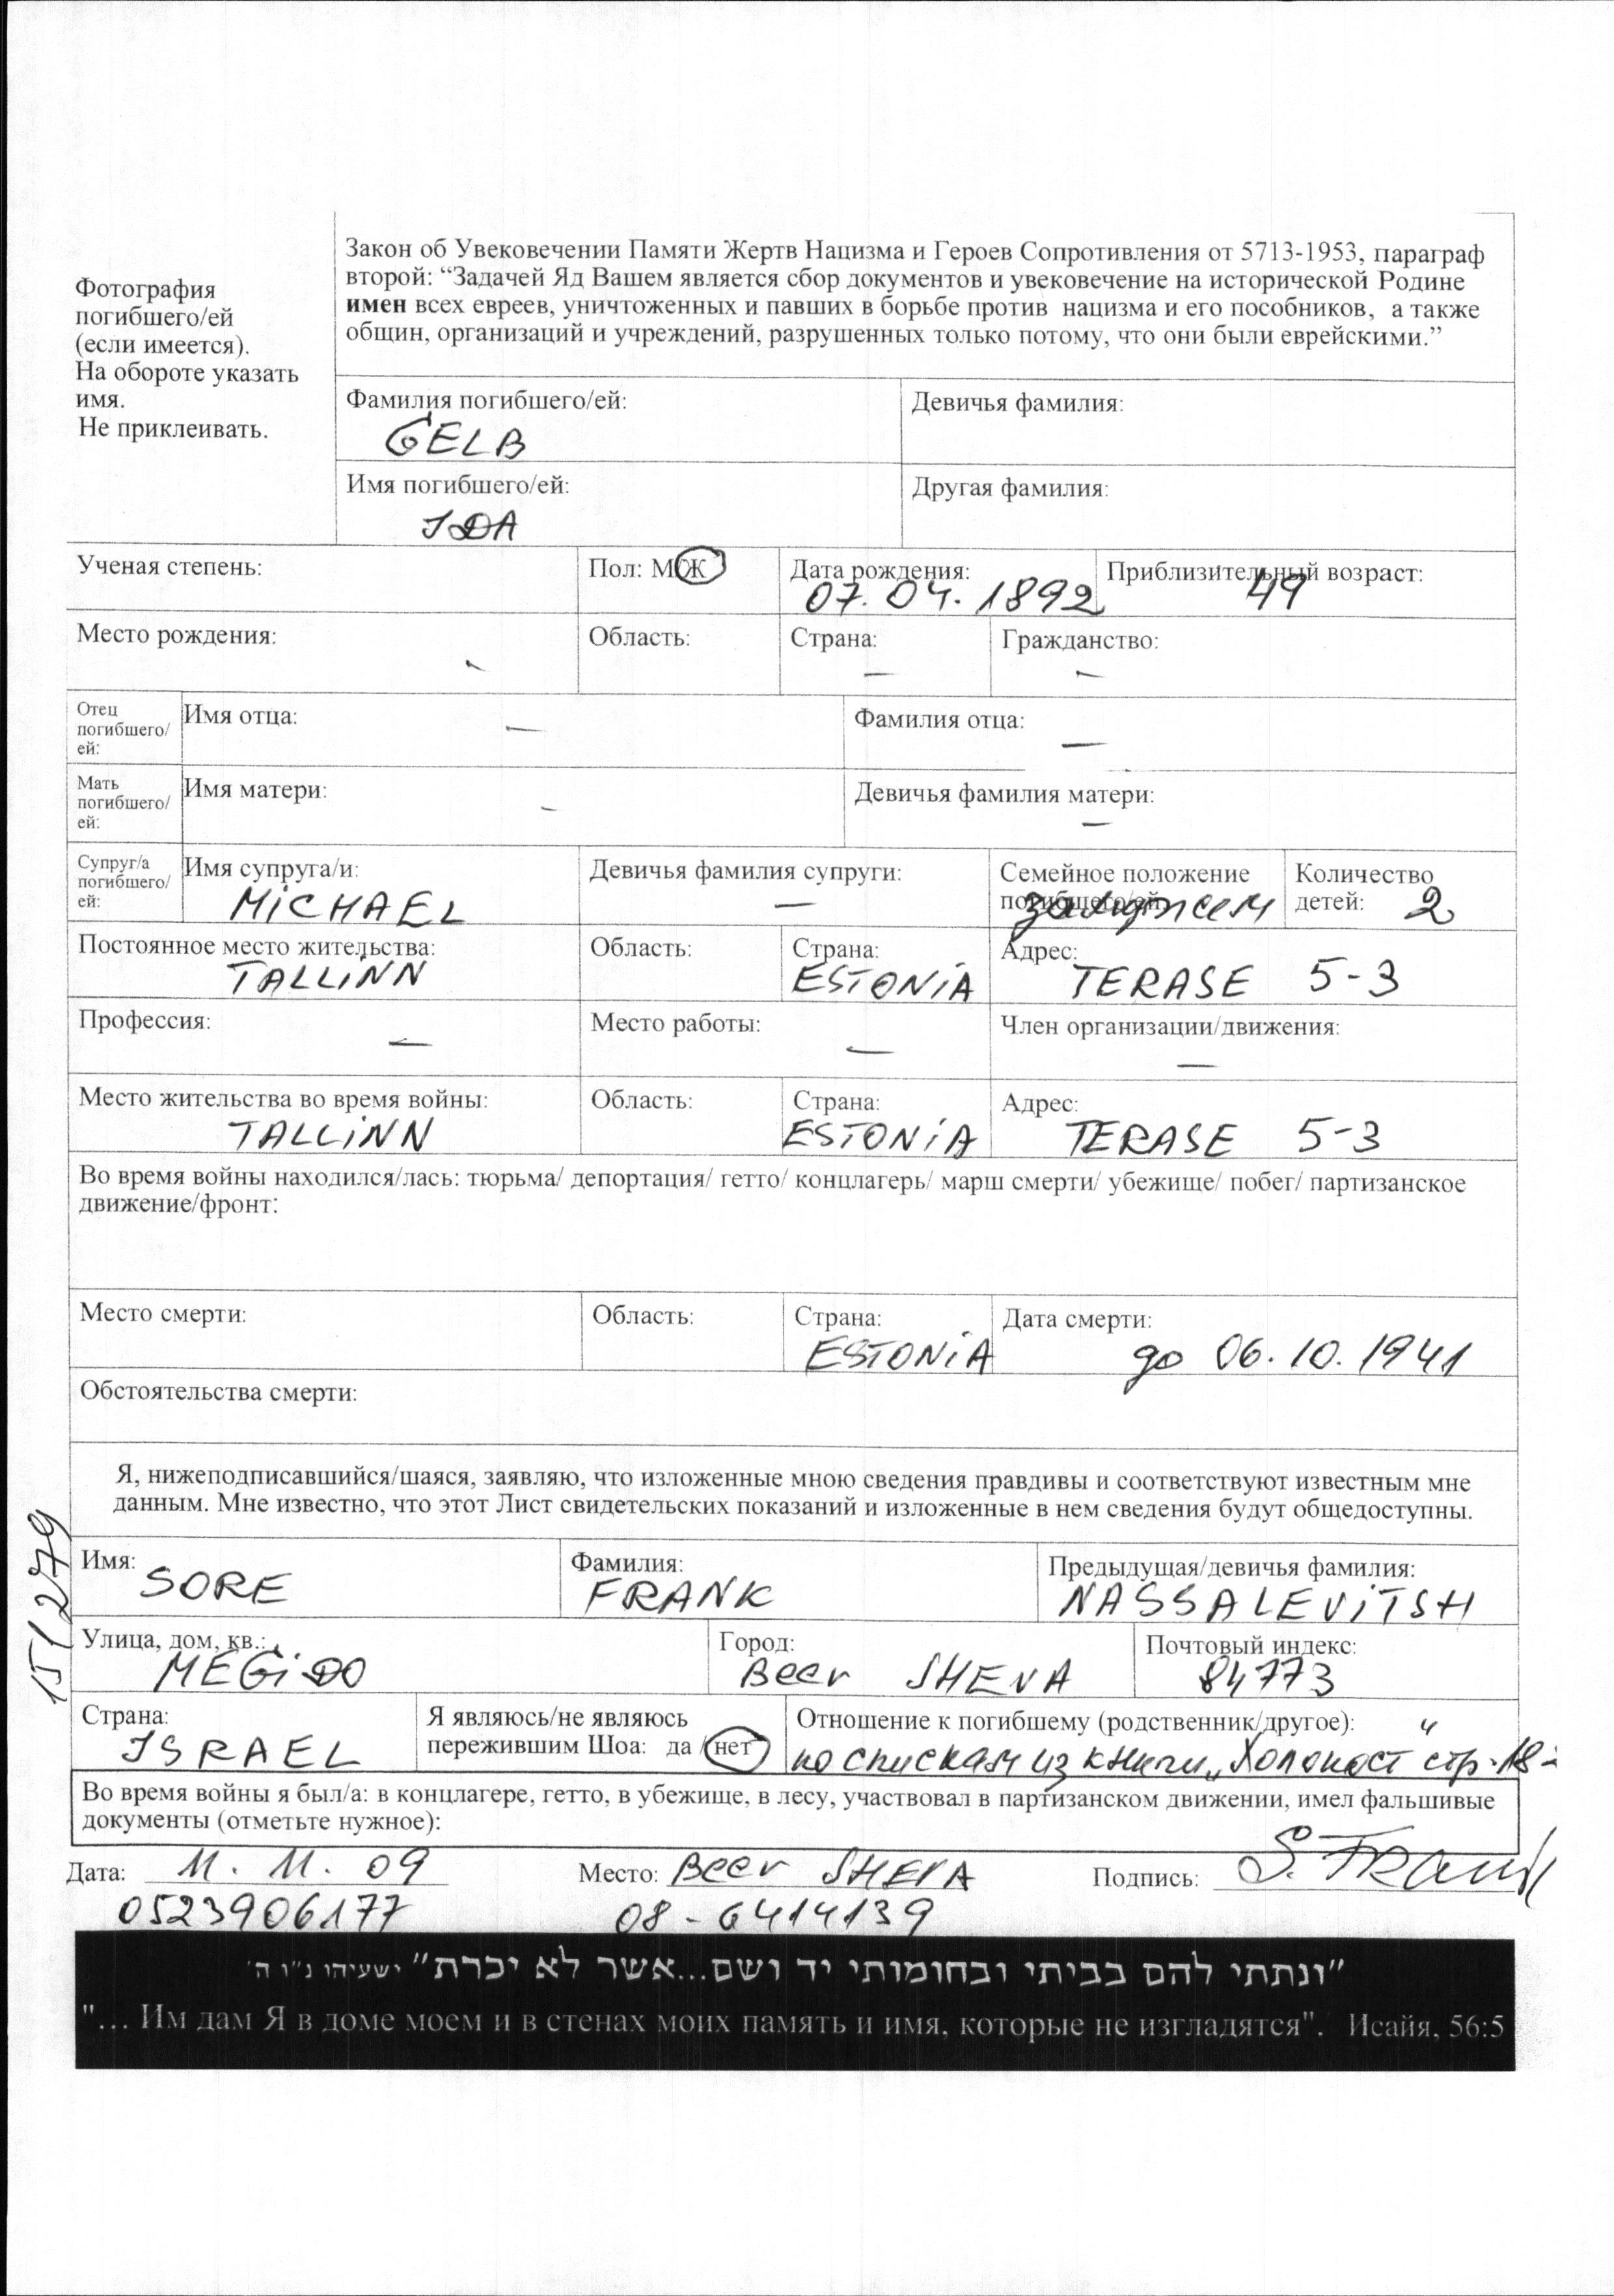 Закон об Увековечении Памяти Жертв Нацизма и Героев Сопротивления от 5713-1953, параграф
второй: “Задачей Яд Вашем является сбор документов и увековечение на исторической Родине
имен всех евреев, уничтоженных и павших в борьбе против нацизма и его пособников, а также
общин, организаций и учреждений, разрушенных только потому, что они были еврейскими.”
Фотография
погибшего/ей
(если имеется).
На обороте указать
имя.
Не приклеивать.
Фамилия погибшего/ей: Девичья фамилия:
GELB
Имя погибшего/ей: Другая фамилия:
IDA
Ученая степень: Пол: М/Ж Дата рождения: Приблизительный возраст:
07.04.1892 49
Место рождения: Область: Страна: Гражданство:
– – –
Отец
погибшего/
ей:
Имя отца: – Фамилия отца: –
Мать
погибшего/
ей:
Имя матери: – Девичья фамилия матери: –
Супруг/а
погибшего/
ей:
Имя супруга/и: Девичья фамилия супруги: Семейное положение погибшего/ей: Количество детей:
MiCHAEL – замужем 2
Постоянное место жительства: Область: Страна: Адрес:
TALLiNN ESTONiA TERASE 5-3
Профессия: Место работы: Член организации/движения:
– – –
Место жительства во время войны: Область: Страна: Адрес:
TALLiNN ESTONiA TERASE 5-3
Во время войны находился/лась: тюрьма/ депортация/ гетто/ концлагерь/ марш смерти/ убежище/ побег/ партизанское
движение/фронт:
Место смерти: Область: Страна: Дата смерти:
ESTONiA до 06.10.1941
Обстоятельства смерти:
Я, нижеподписавшийся/шаяся, заявляю, что изложенные мною сведения правдивы и соответствуют известным мне
данным. Мне известно, что этот Лист свидетельских показаний и изложенные в нем сведения будут общедоступны.
Имя: Фамилия: Предыдущая/девичья фамилия:
SORE FRANK NASSALEViTSH
Улица, дом, кв.: Город: Почтовый индекс:
MEGiDO Beer SHEVA 84773
Страна: Я являюсь/не являюсь Отношение к погибшему (родственник/другое):
ISRAEL пережившим Шоа: да / нет по спискам из книги „Холокост“ стр-18-
Во время войны я был/а: в концлагере, гетто, в убежище, в лесу, участвовал в партизанском движении, имел фальшивые
документы (отметьте нужное):
Дата: 11.11.09 Место: Beer SHEVA Подпись: S. FRank
0523906177 08-6414139
״ונתתי להם בביתי ובחומותי יד ושם...אשר לא יכרת״ ישעיהו נ״ו ה׳
"... Им дам Я в доме моем и в стенах моих память и имя, которые не изгладятся". Исайя, 56:5